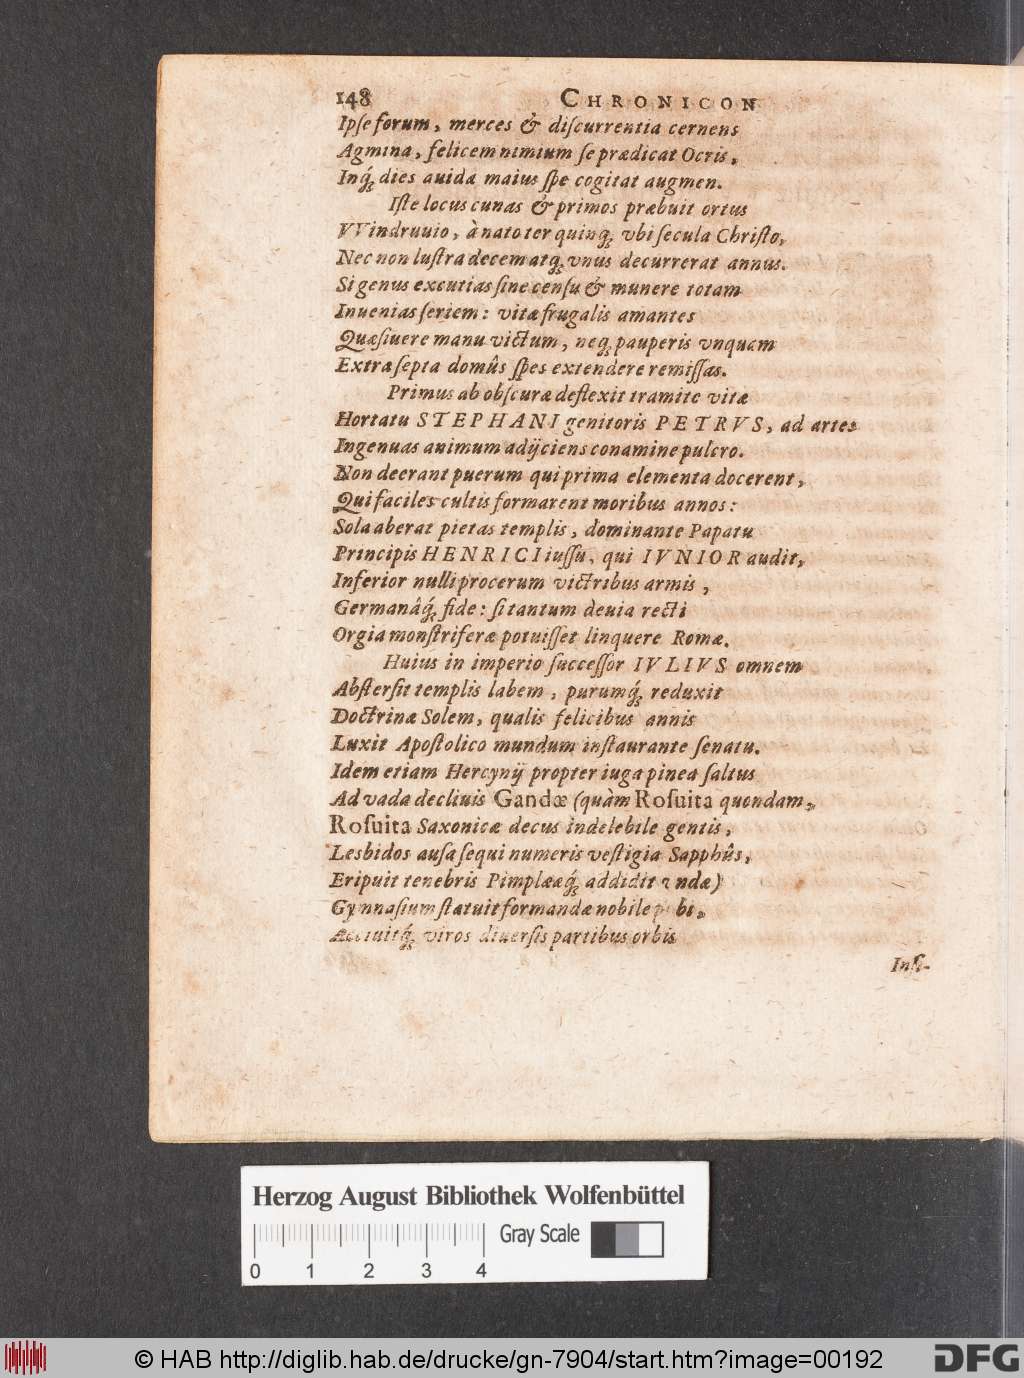 148 CHRONICON
Ipſe forum, merces & diſcurrentia cernens
Agmina, felicem nimium ſe prædicat Ocris,
Inq́ꝫ dies auida maius ſpe cogitat augmen.
Iſte locus cunas & primos præbuit ortus
VVindruuio, à nato ter quinqꝫ vbi ſecula Chriſto,
Nec non luſtra decem atqꝫ vnus decurrerat annus.
Si genus excutias ſine cenſu & munere totam
Inuenias ſeriem: vitæ frugalis amantes
Quæſiuere manu victum, neqꝫ pauperis vnquam
Extra ſepta domûs ſpes extendere remiſſas.
Primus ab obſcuræ deflexit tramite vitæ
Hortatu STEPHANI genitoris PETRVS, ad artes
Ingenuas animum adijciens conamine pulcro.
Non deerant puerum qui prima elementa docerent,
Qui faciles cultis formarent moribus annos:
Sola aberat pietas templis, dominante Papatu
Principis HENRICI iuſſu, qui IVNIOR audit,
Inferior nulli procerum victribus armis,
Germanâq́ꝫ fide: ſi tantum deuia recti
Orgia monſtriferæ potuiſſet linquere Romæ.
Huius in imperio ſucceſſor IVLIVS omnem
Abſterſit templis labem, purumq́ꝫ reduxit
Doctrinæ Solem, qualis felicibus annis
Luxit Apoſtolico mundum inſtaurante ſenatu.
Idem etiam Hercynij propter iuga pinea ſaltus
Ad vada decliuis Gandæ (quàm Roſuita quondam,
Roſuita Saxonicæ decus indelebile gentis,
Lesbidos auſa ſequi numeris veſtigia Sapphûs,
Eripuit tenebris Pimplææq́ꝫ addidit vndæ)
Gymnaſium ſtatuit formandæ nobile pubi,
Acciuitq́ꝫ viros diuerſis partibus orbis
Inſi-
Herzog August Bibliothek Wolfenbüttel
Gray Scale
0 1 2 3 4
© HAB http://diglib.hab.de/drucke/gn-7904/start.htm?image=00192
DFG